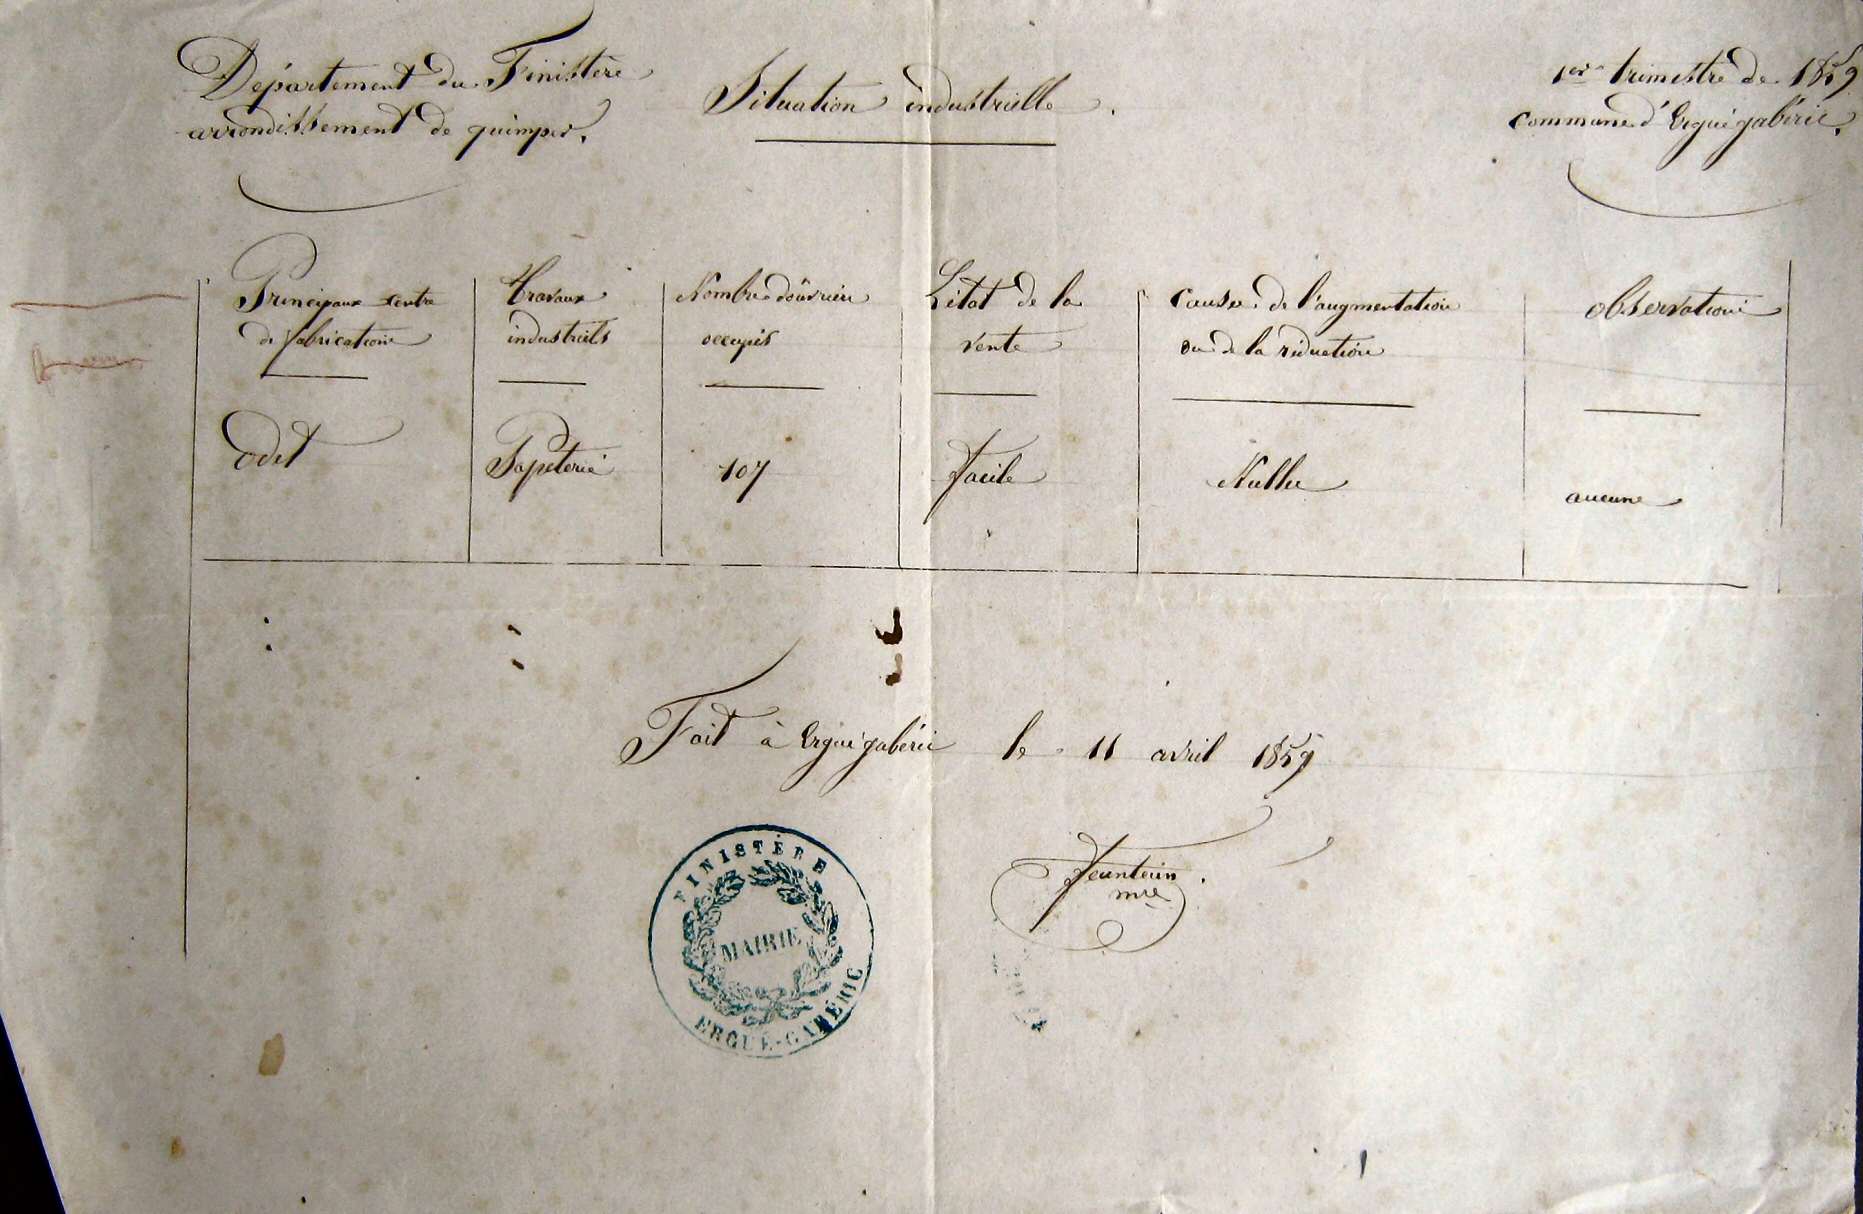 Département du Finistère
arrondissement de quimper.
Situation industrielle.
1er trimestre de 1859
commune d'Ergué gabéric.
Principaux centre
de fabrication
Travaux
industriels
Nombre d'ouvriers
occupés
L'état de la
vente
Causes de l'augmentation
ou de la réduction
observations
Odet
Papeterie
107
facile
Nulle
aucune
Fait à Ergué gabéric le 11 avril 1859
FINISTÈRE
MAIRIE
ERGUÉ-GABÉRIC
mre